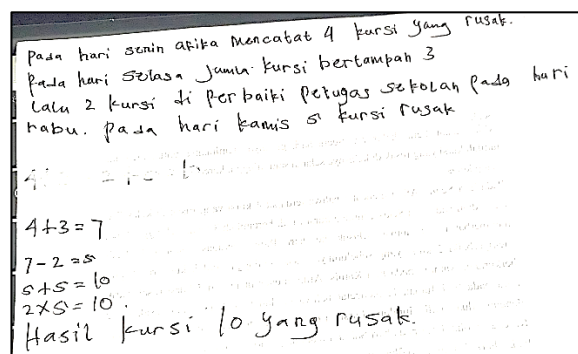 Pada hari senin afika Mencatat 4 kursi yang rusak.
Pada hari selasa Jumla kursi bertampah 3
Lalu 2 kursi di Perbaiki Petugas sekolah Pada hari
rabu. Pada hari kamis 5 kursi rusak
4+3=7
7-2=5
5+5=10
2x5=10.
Hasil kursi 10 yang rusak.